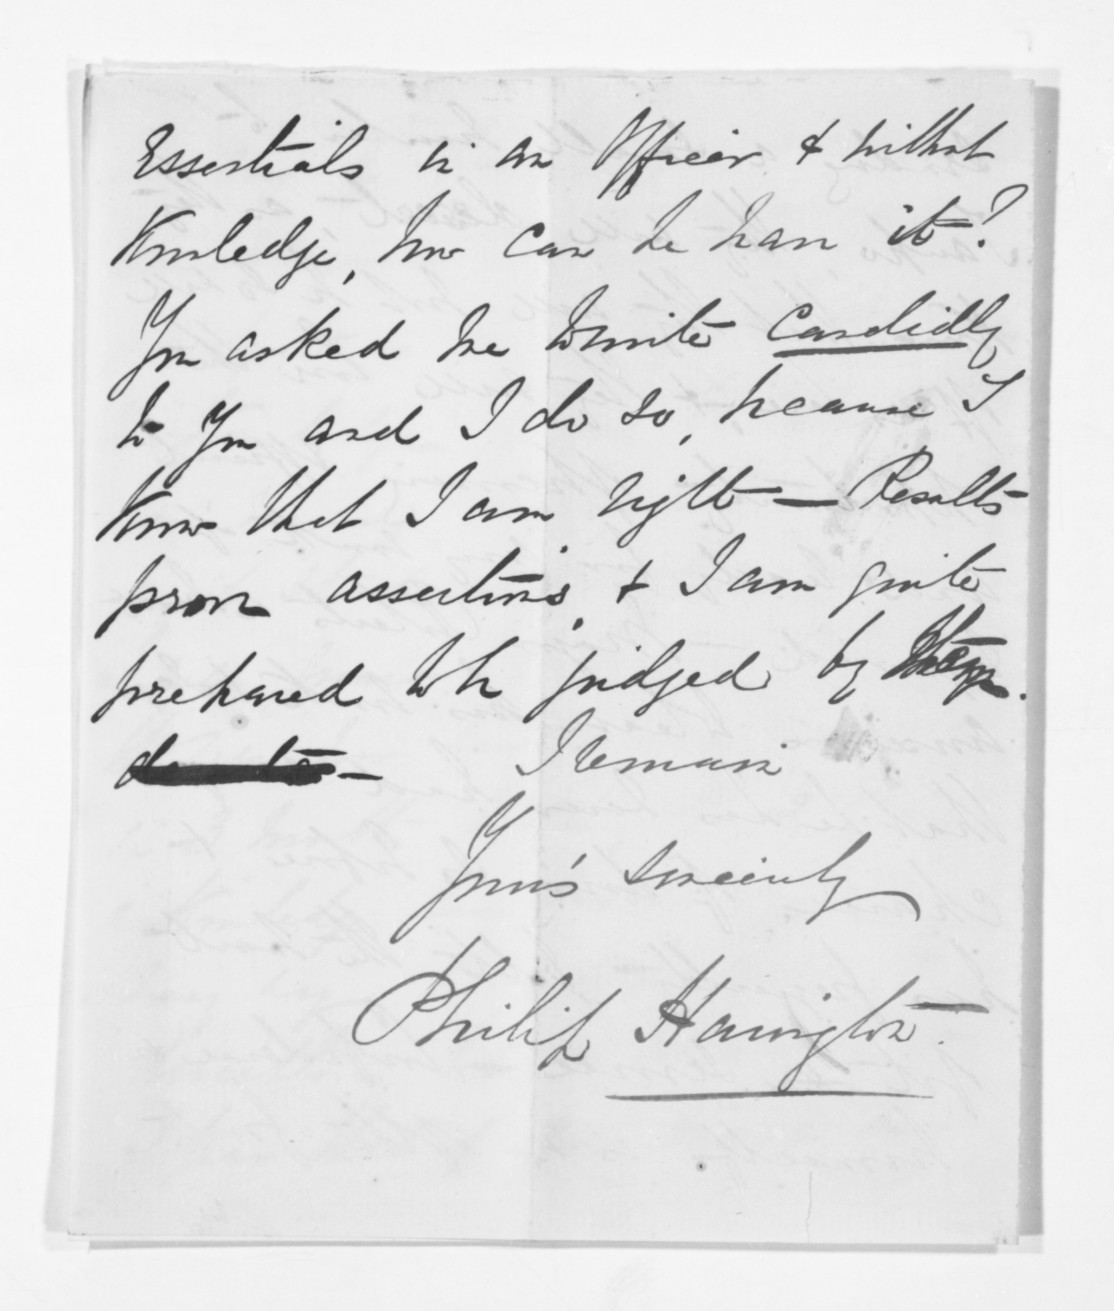 Essentials in an Officer & without
Knowledge, how can he have it?
You asked me to write candidly
to you and I do so, because I
know that I am right — Results
prove assertions, & I am quite
prepared to be judged by them.
I remain
Your's sincerely
Philip Harington.